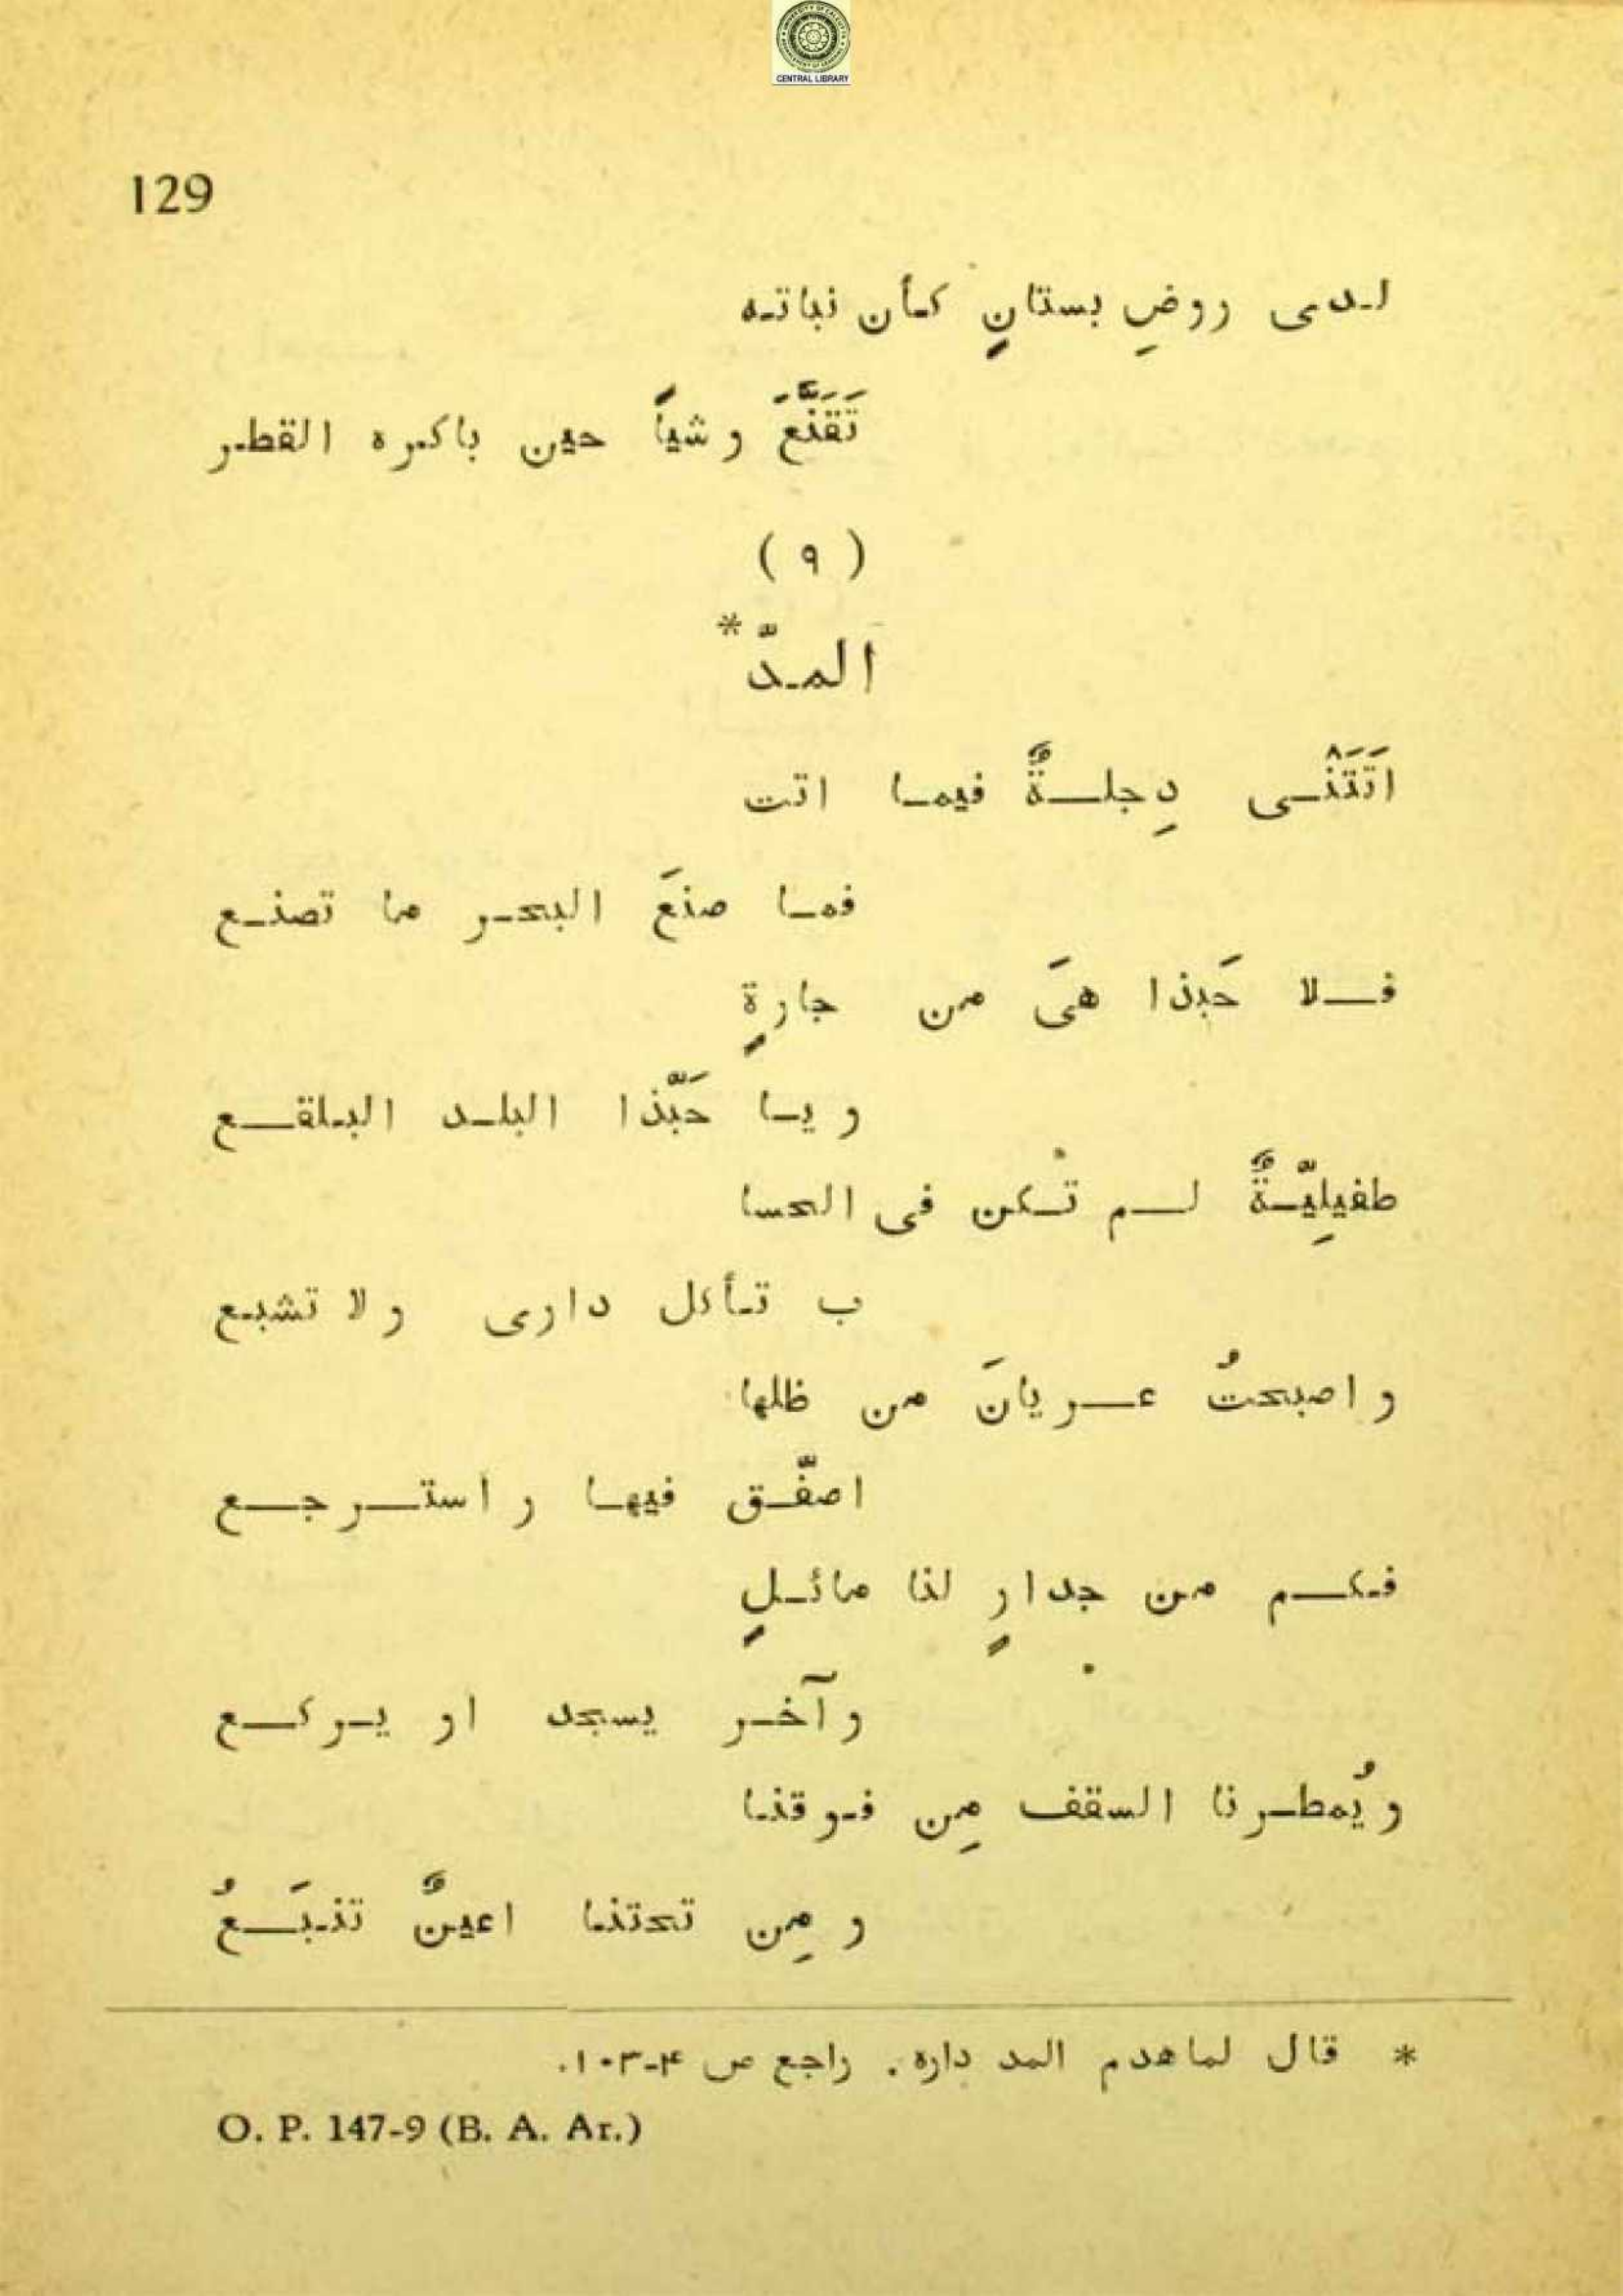 CENTRAL LIBRARY
129
لدى روضِ بستانٍ كأن نباته
تَقَنَّعَ وشياً حين باكره القطر
( ٩ )
المدّ *
اَتَتَنْى دِجلةٌ فيما اتت
فما صنعَ البحر ما تصنع
فلا حَبذا هىَ من جارةٍ
ويا حَبّذا البلد البلقع
طفيلِيّةٌ لم تكن فى الحسا
ب تأكل دارى ولا تشبع
واصبحتُ عريانَ من ظلها
اصفّق فيها واسترجع
فكم من جدارٍ لنا مائلٍ
وآخر يسجد او يركع
ويُمطرنا السقف مِن فوقنا
ومِن تحتنا اعينٌ تنبَعُ
* قال لماهدم المد داره. راجع ص ۴-١٠٣.
O. P. 147-9 (B. A. Ar.)